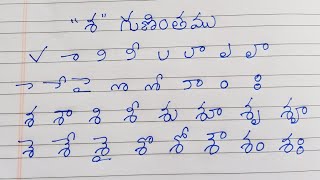 "శ" గుణింతము
✓ ా ి ీ ు ూ ృ ౄ
ె ే ై ొ ో ౌ ం ః
శ శా శి శీ శు శూ శృ శౄ
శె శే శై శొ శో శౌ శం శః